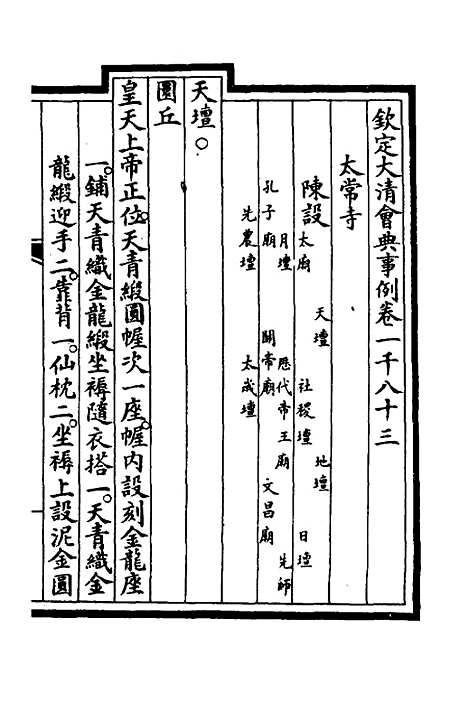 欽定大清會典事例卷一千八十三
太常寺
陳設
天壇 地壇
太廟 社稷壇 日壇
月壇 歷代帝王廟 先師
孔子廟 關帝廟 文昌廟
先農壇 太歲壇
天壇○
圜丘
皇天上帝正位。天青緞圓幄次一座。幄內設刻金龍座
一。鋪天青織金龍緞坐褥隨衣搭一。天青織金
龍緞迎手二。靠背一。仙枕二。坐褥上設泥金圓